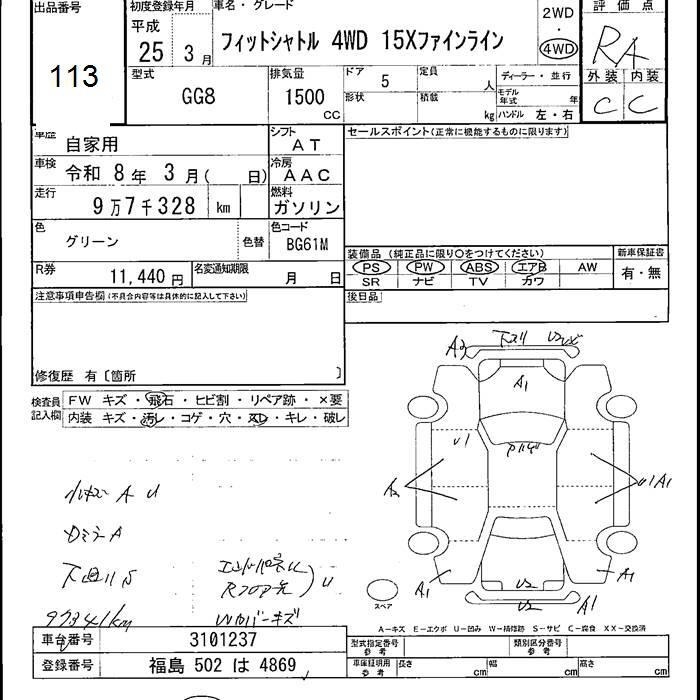 出品番号 初度登録年月 車名・グレード 評価点
平成 2WD
113 25年 3月 フィットシャトル 4WD 15Xファインライン 4WD RA
型式 排気量 ドア 5 定員 人 ディーラー・並行 外装 内装
GG8 1500 CC 形状 積載 kg モデル年式 年 C C
ハンドル 左・右
車歴 自家用 シフト AT セールスポイント(正常に機能するものに限ります)
車検 令和 8年 3月( 日) 冷房 AAC
走行 9万7千328 km 燃料 ガソリン
色 グリーン 色替 色コード BG61M
装備品 (純正品に限り○をつけてください) 新車保証書
R券 11,440円 名変通知期限 月 日 PS PW ABS エアB AW 有・無
SR ナビ TV カワ
注意事項申告欄(不具合内容等は具体的に記入して下さい) 後日品
修復歴 有〔箇所 〕
検査員 FW キズ・飛石・ヒビ割・リペア跡・×要
記入欄 内装 キズ・汚レ・コゲ・穴・スレ・キレ・破レ
A3
A1
U1
A2
U1 A1
小キズ A U
A1
U2
A1
U2
A1
97341km
スペア
A-キズ E-エクボ U-凹み W-補修跡 S-サビ C-腐食 XX-交換済
車台番号 3101237 型式指定番号 参考 類別区分番号 参考
登録番号 福島 502 は 4869 車庫証明用 参考 長さ cm 幅 cm 高さ cm